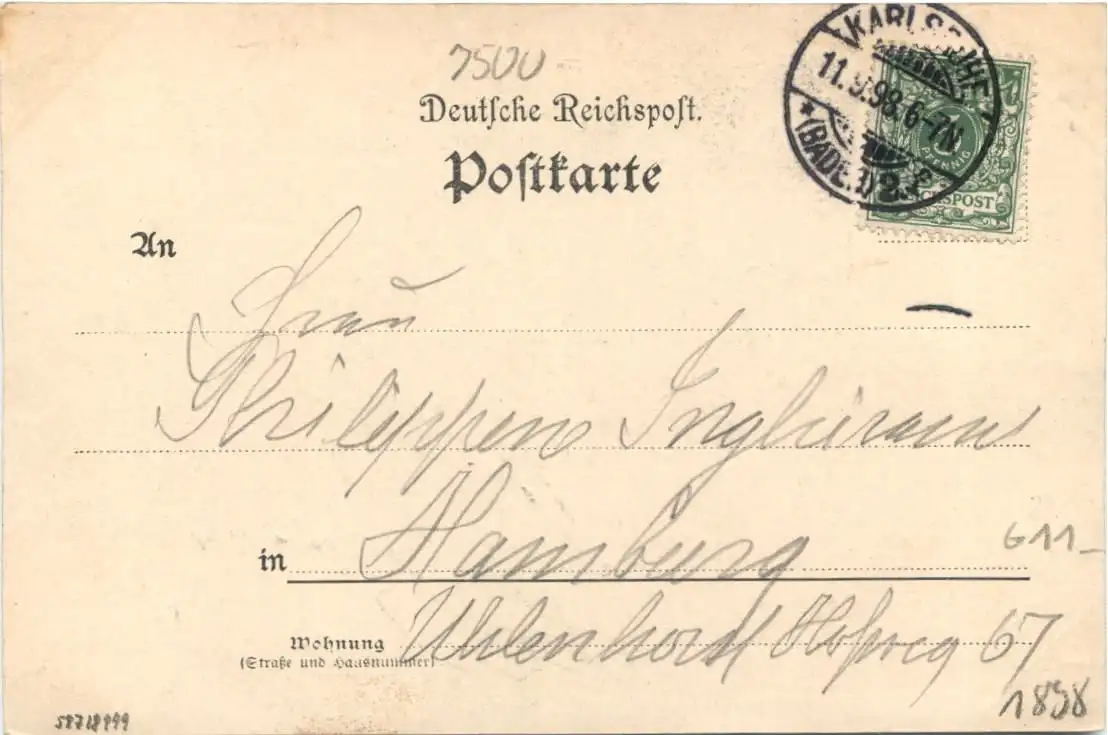 7500
Deutsche Reichspost.
Postkarte
KARLSRUHE
11.9.98.6-7N
(BADEN) 2.
PFENNIG
REICHSPOST
An
Frau
in Hamburg
611-
Wohnung Uhlenhorst 67
(Straße und Hausnummer)
1898
58718999